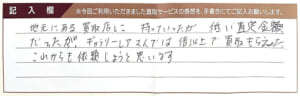 記入欄
※今回ご利用いただきました買取サービスの感想を、手書きにてご記入お願いします。
地元にある買取店に持っていったが 低い査定金額
だったが、ギャラリーレアさんでは倍以上で買取もらえた
これからも依頼しようと思います